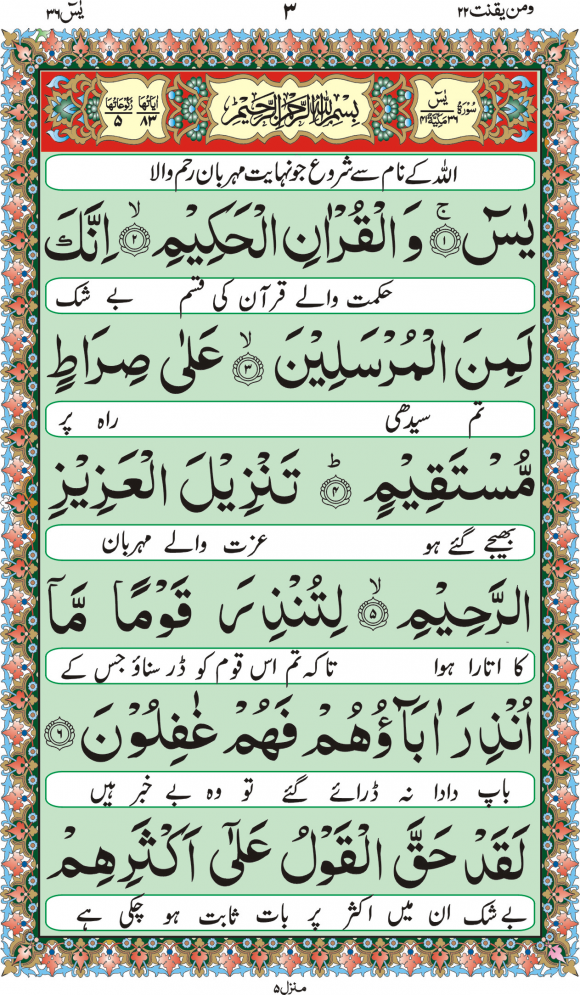 ومن یقنت ۲۲ ۳ یٰسٓ ۳۶
سُوْرَۃُ یٰسٓ ۳۶ مَکِّیَّۃٌ ۴۱ بِسْمِ اللّٰہِ الرَّحْمٰنِ الرَّحِیْمِ اٰیَاتُہَا ۸۳ رُکُوْعَاتُہَا ۵
اللہ کے نام سے شروع جو نہایت مہربان رحم والا
یٰسٓ ۚ﴿۱﴾ وَ الْقُرْاٰنِ الْحَكِیْمِ ۙ﴿۲﴾ اِنَّكَ
حکمت والے قرآن کی قسم بے شک
لَمِنَ الْمُرْسَلِیْنَ ۙ﴿۳﴾ عَلٰی صِرَاطٍ
تم سیدھی راہ پر
مُّسْتَقِیْمٍ ؕ﴿۴﴾ تَنْزِیْلَ الْعَزِیْزِ
بھیجے گئے ہو عزت والے مہربان
الرَّحِیْمِ ۙ﴿۵﴾ لِتُنْذِرَ قَوْمًا مَّاۤ
کا اتارا ہوا تاکہ تم اس قوم کو ڈر سناؤ جس کے
اُنْذِرَ اٰبَآؤُهُمْ فَهُمْ غٰفِلُوْنَ ﴿۶﴾
باپ دادا نہ ڈرائے گئے تو وہ بے خبر ہیں
لَقَدْ حَقَّ الْقَوْلُ عَلٰۤی اَكْثَرِهِمْ
بے شک ان میں اکثر پر بات ثابت ہو چکی ہے
منزل ۵